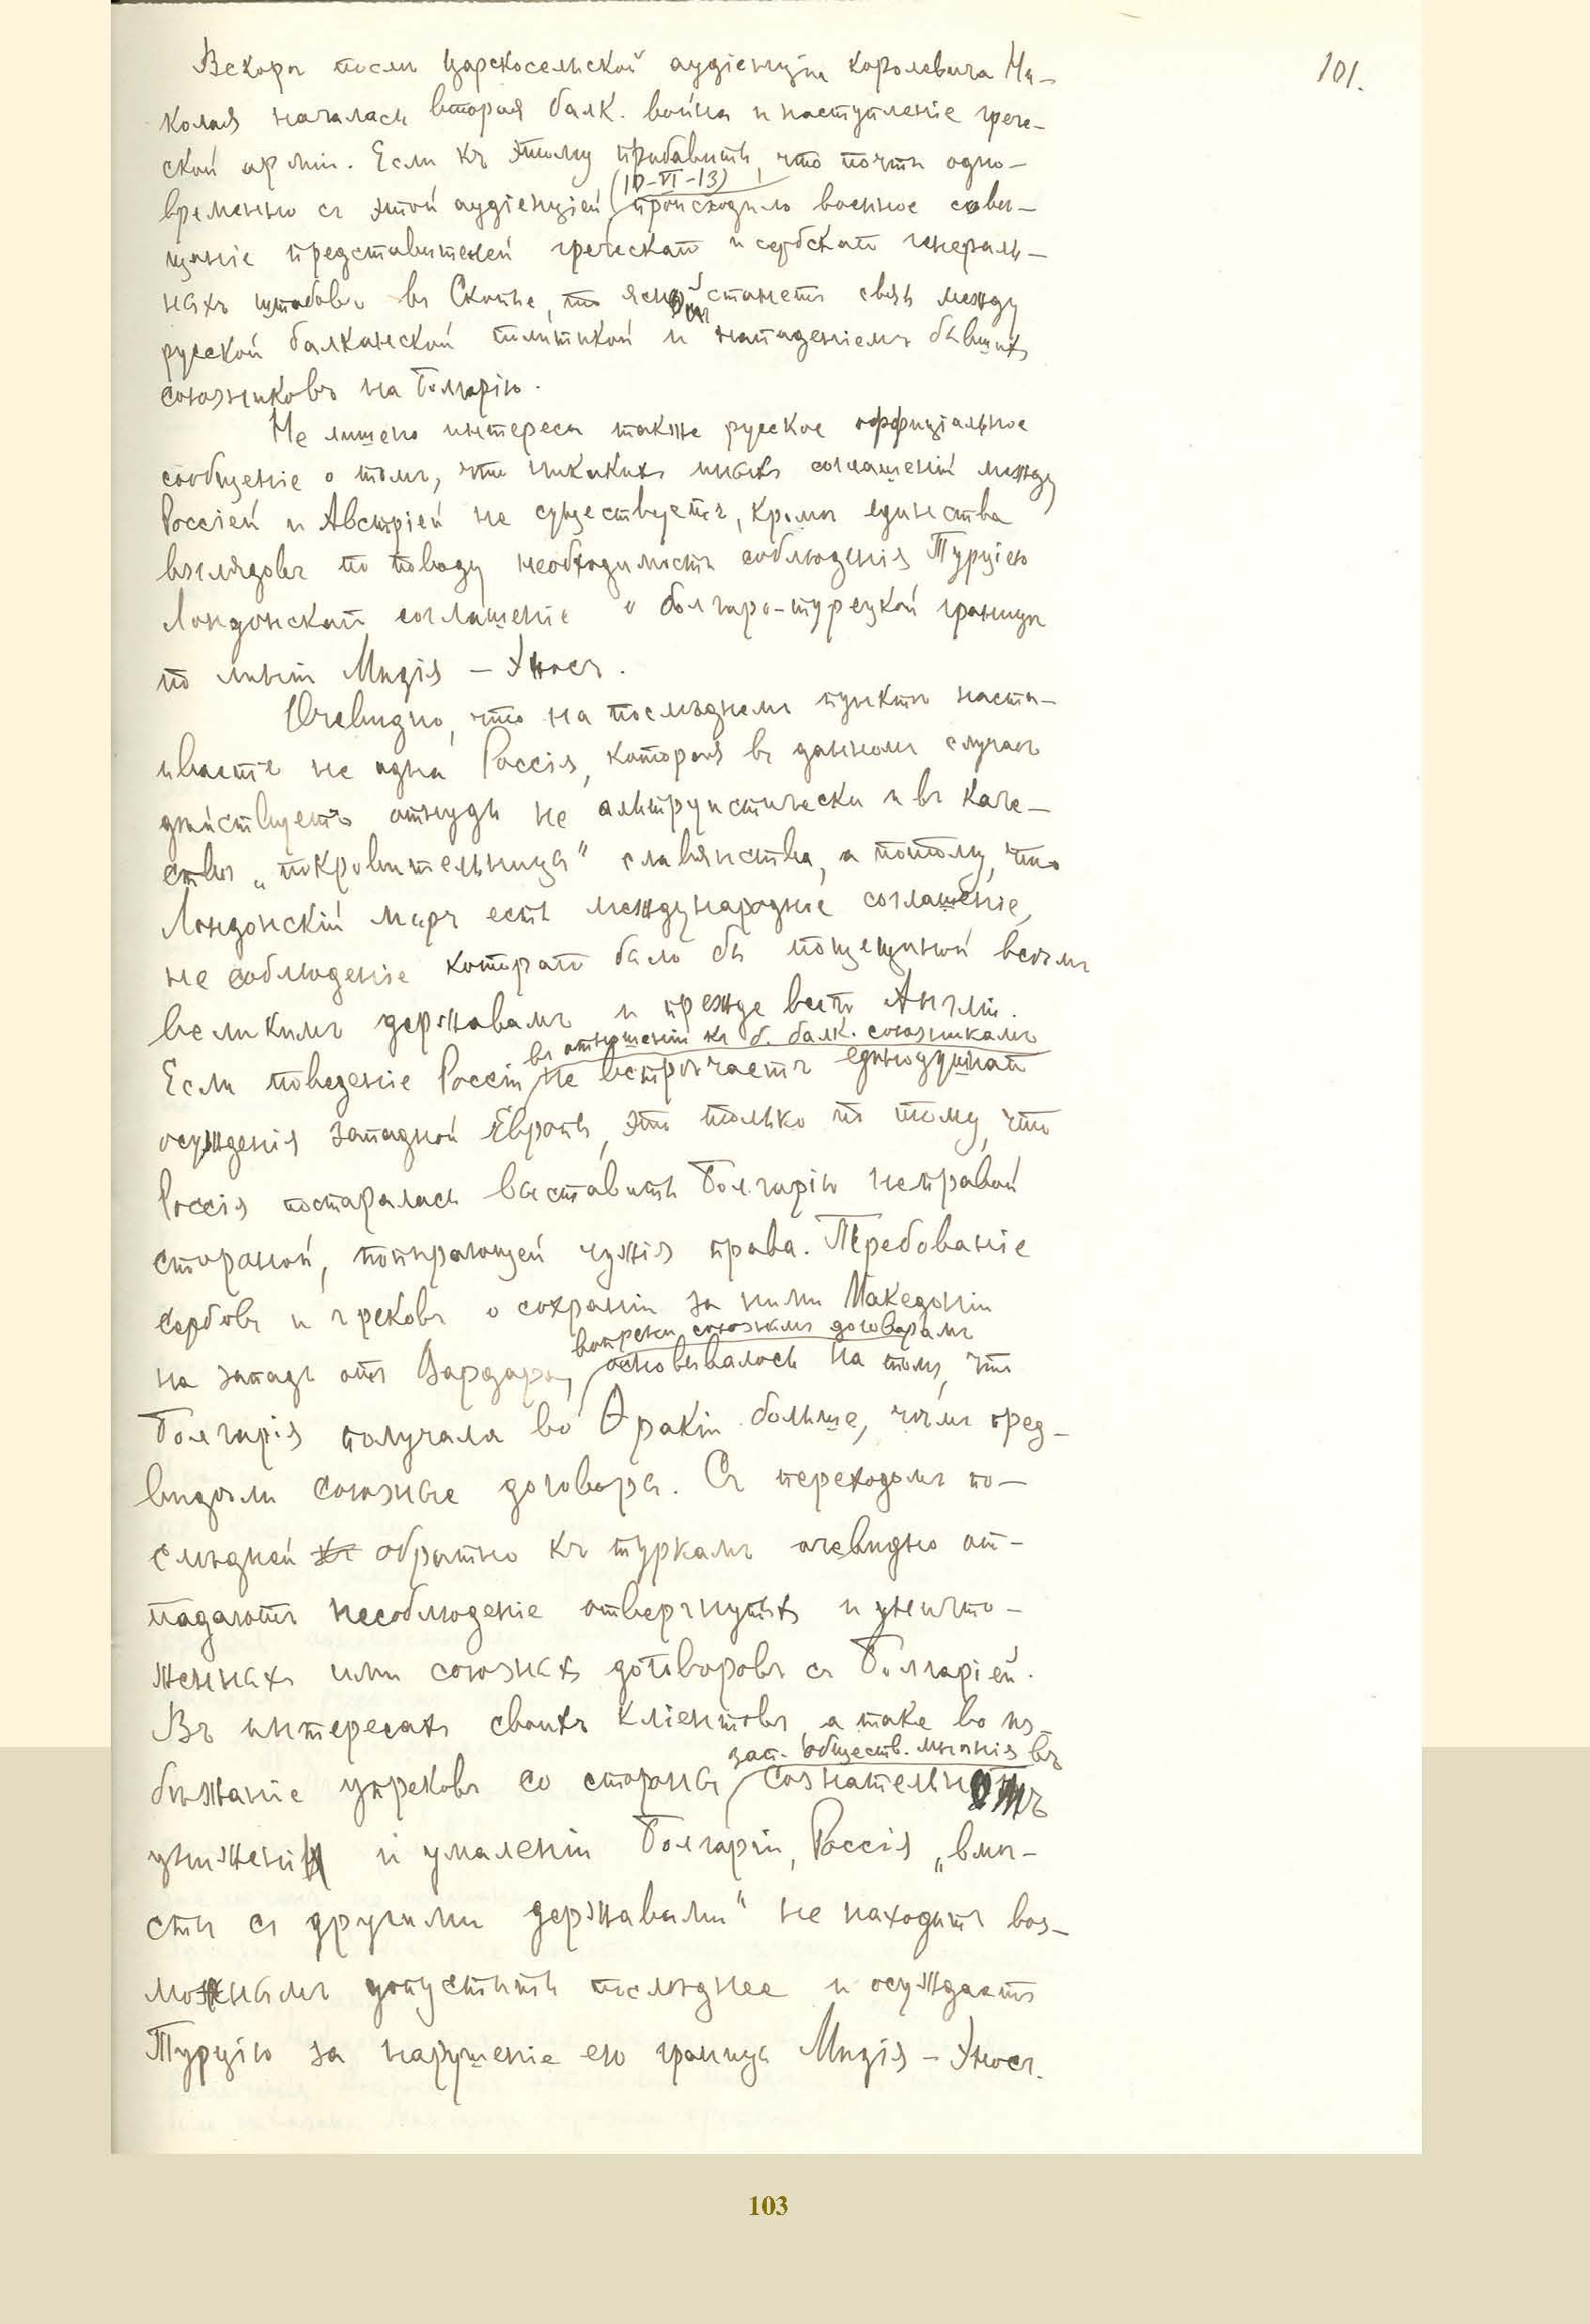 101.
Вскорѣ послѣ Царскосельской аудіенціи королевича Ни-
колая началась вторая балк. война и наступленіе грече-
ской арміи. Если къ этому прибавить, что почти одно-
(10-VI-13)
временно съ этой аудіенціей происходило военное совѣ-
щаніе представителей греческаго и сербскаго генераль-
ныхъ штабовъ въ Скопле, то яснѣй станетъ связь между
русской балканской политикой и нападеніемъ бывшихъ
союзниковъ на Болгарію.
Не лишено интереса также русское оффиціальное
сообщеніе о томъ, что никакихъ иныхъ соглашеній между
Россіей и Австріей не существуетъ, кромѣ единства
взглядовъ по поводу необходимости соблюденія Турціею
Лондонскаго соглашеніе о болгаро-турецкой границѣ
по линіи Мидія – Эносъ.
Очевидно, что на послѣднемъ пунктѣ наста-
иваетъ не одна Россія, которая въ данномъ случаѣ
дѣйствуетъ отнюдь не альтруистически и въ каче-
ствѣ „покровительница" славянства, а потому, что
Лондонскій миръ есть международное соглашеніе,
не соблюденіе котораго было бы пощечиной всѣмъ
великимъ державамъ и прежде всего Англіи.
въ отношеніи къ б. балк. союзникамъ
Если поведеніе Россіи не встрѣчаетъ единодушнаго
осужденія западной Европы, это только по тому, что
Россія постаралась выставить Болгарію неправой
стороной, попирающей чужія права. Требованіе
сербовъ и грековъ о сохраніи за ними Македоніи
вопреки союзнымъ договорамъ
на западъ отъ Вардара, основывалось на томъ, что
Болгарія получала во Ѳракіи больше, чѣмъ пред-
видѣли союзные договоры. Съ переходомъ по-
слѣдней обратно къ туркамъ очевидно от-
падаютъ несоблюденіе отвергнутыхъ и уничто-
женныхъ ими союзныхъ договоровъ съ Болгаріей.
Въ интересахъ своихъ кліентовъ, а таке во из-
зап. обществ. мнѣнія въ
бѣжаніе упрековъ со стороны сознательномъ
униженіи и умаленіи Болгаріи, Россія „вмѣ-
стѣ съ другими державами" не находитъ воз-
можнымъ допустить послѣднее и осуждаетъ
Турцію за нарушеніе ею границы Мидія – Эносъ.
103